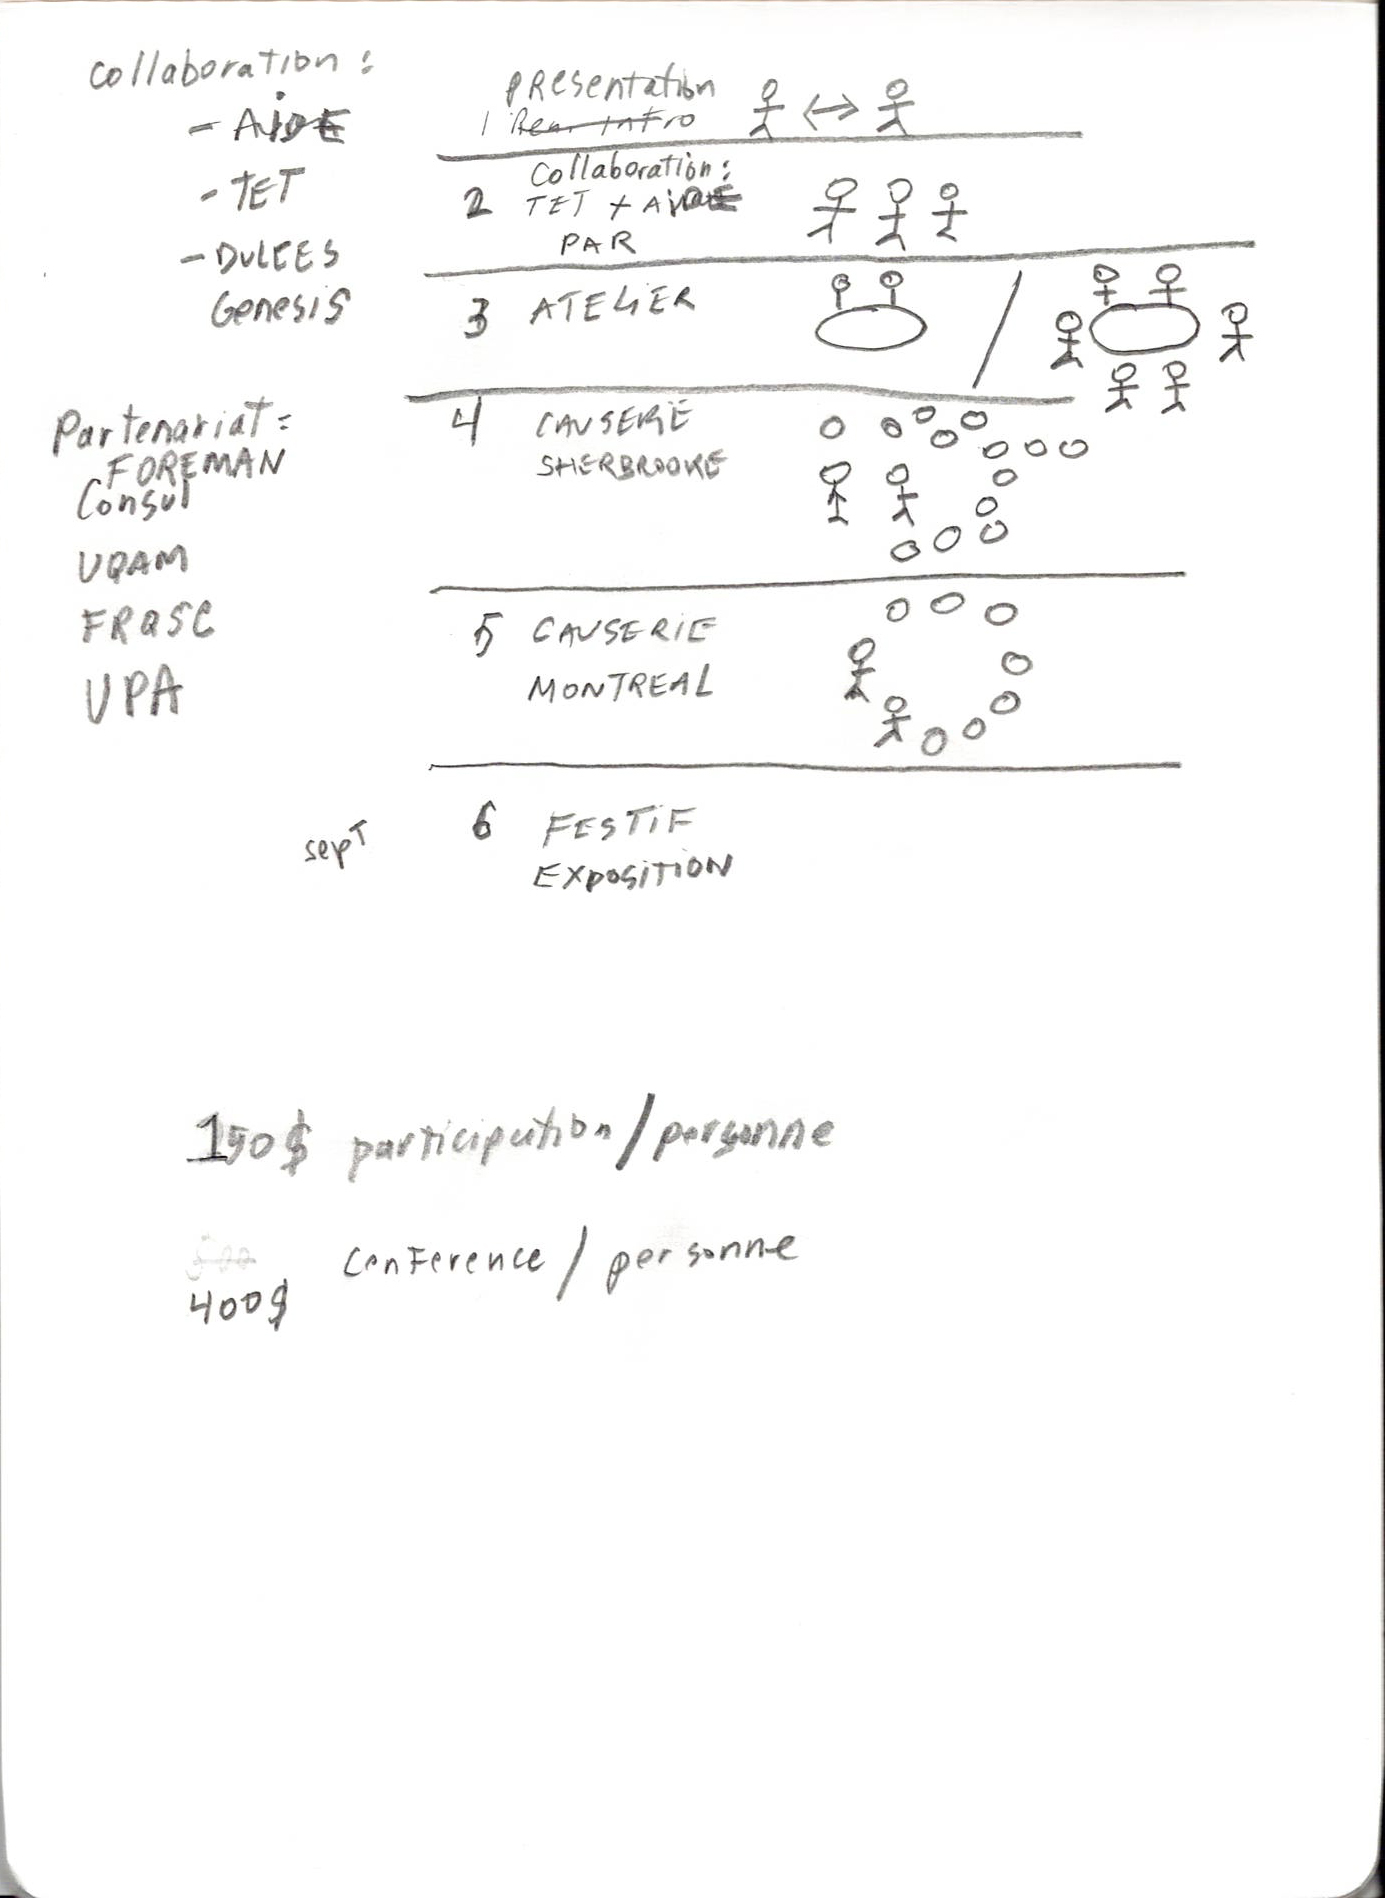 Collaboration :
- AIDE
- TET
- DULCES
Genesis
Partenariat :
FOREMAN
Consul
UQAM
FRQSC
UPA
sept
PResentation
1 Ren. Intro
Collaboration :
2 TET + AIDE
PAR
3 ATELIER
4 CAUSERIE
SHERBROOKE
5 CAUSERIE
MONTREAL
6 FESTIF
EXPOSITION
150$ participation / personne
500
Conference / personne
400$